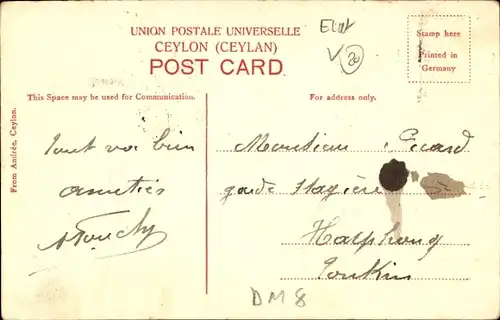 UNION POSTALE UNIVERSELLE
CEYLON (CEYLAN)
POST CARD
Stamp here
Printed in
Germany
This Space may be used for Communication.
For address only.
From Andrée, Ceylon.
Tout va bien
amitiés
Monsieur Picard
garde Stagière
Haïphong
Tonkin
DM 8